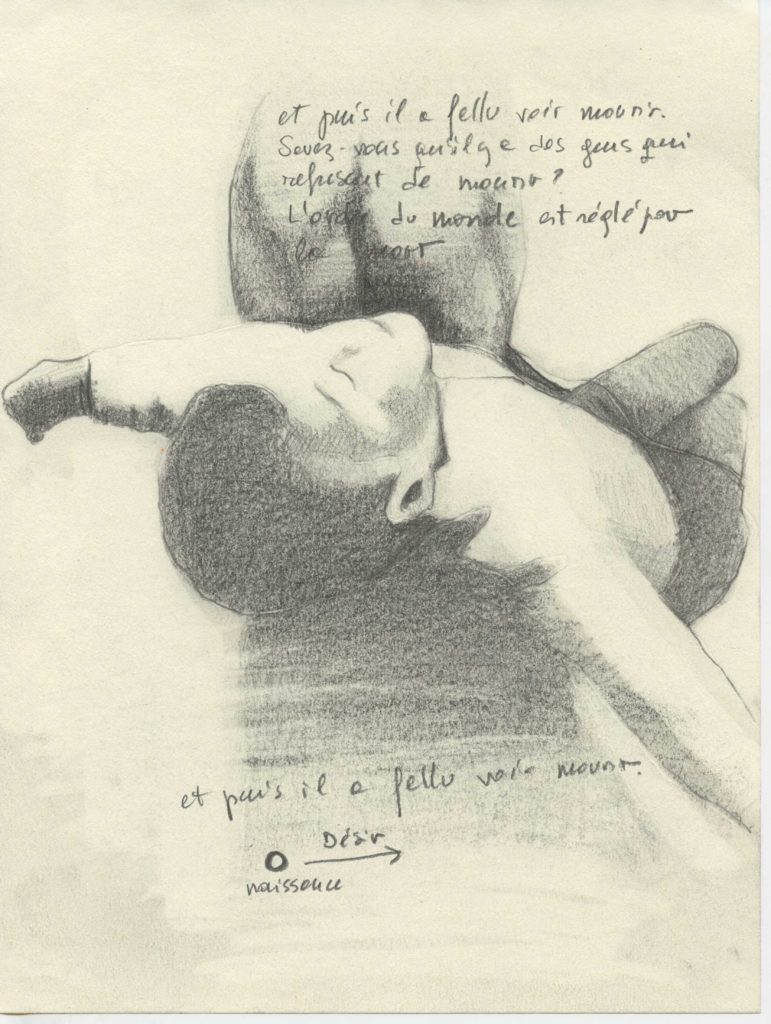 et puis il a fallu voir mourir.
Savez-vous qu'il y a des gens qui
refusent de mourir?
L'ordre du monde est réglé par
la mort
et puis il a fallu voir mourir.
Désir
naissance